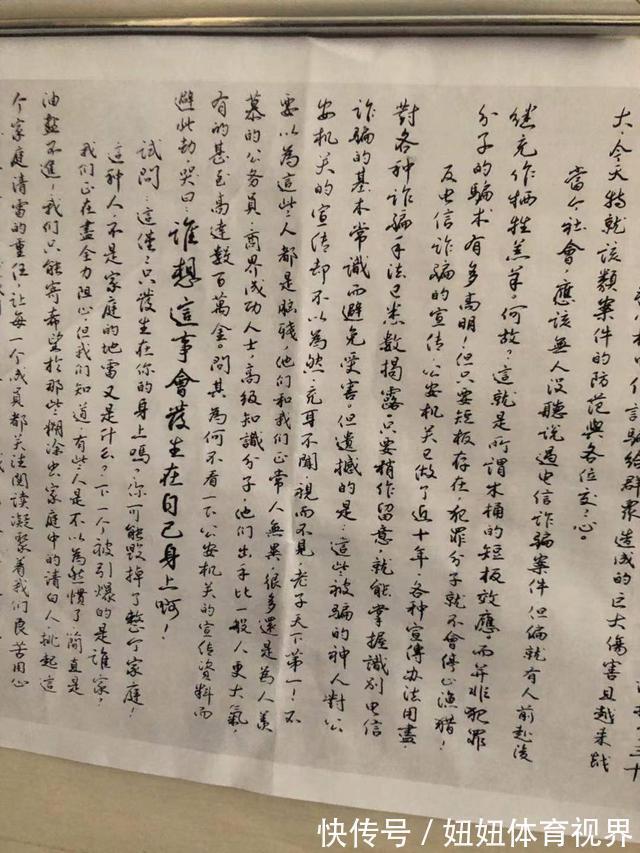 大，今天特就该類案件的防范與各位交心。
當今社會，應該無人沒聽说過电信诈騙案件，但偏就有人前赴後
继充作牺牲羔羊。何故？這就是所謂木桶的短板效應而并非犯罪
分子的騙术有多高明！但只要短板存在，犯罪分子就不會停止漁猎！
反电信诈騙的宣传，公安机关已做了近十年，各种宣傳办法用盡，
對各种诈騙手法已悉數揭露。只要稍作留意，就能掌握識别电信
诈騙的基本常識而避免受害。但遺撼的是：這些被騙的神人對公
安机关的宣传却不以為然，充耳不聞，視而不見，老子天下第一！不
要以為這些人都是脑残，他们和我们正常人無異，很多還是為人羡
慕的公务員，商界成功人士，高级知識分子，他们出手比一般人更大氣，
有的甚至高達數百萬金。問其為何不看一下公安机关的宣传資料而
避此劫，哭曰：誰想這事會發生在自己身上啊！
試問：這僅僅只發生在你的身上嗎？你可能毁掉了整个家庭！
這种人，不是家庭的地雷又是什么？下一个被引爆的是誰家！
我们正在盡全力阻止，但我们知道有些人是不以為然慣了，简直是
油鹽不進！我们只能寄希望於那些糊涂虫家庭中的清白人，挑起這
个家庭清雷的重任，让每一个成員都关注阅读凝聚着我们良苦用心
快传号／妞妞体育视界